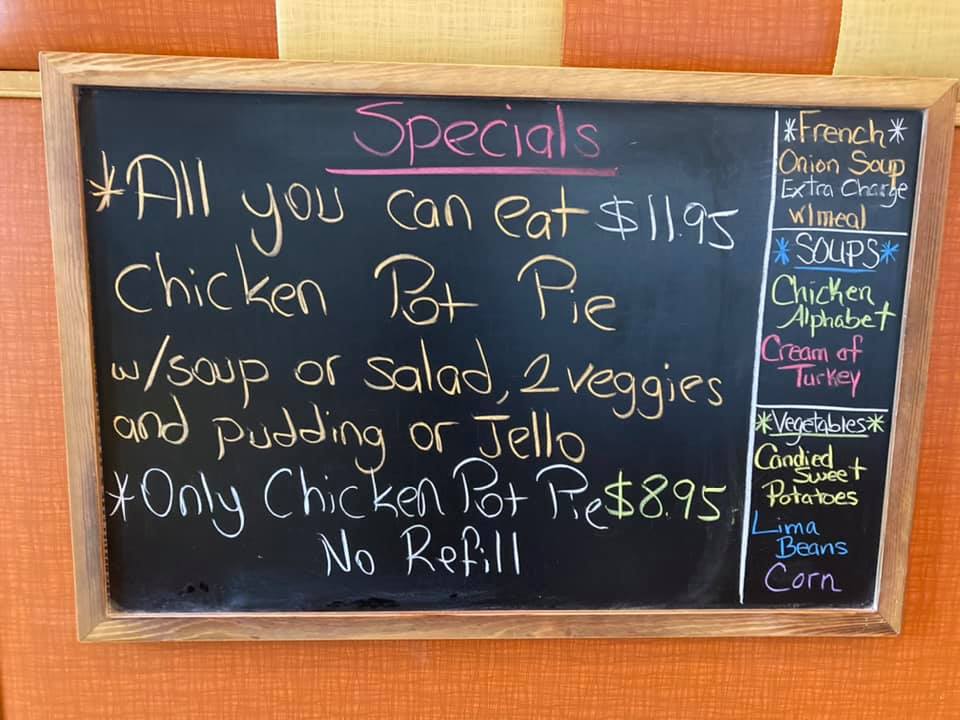 Specials
*All you can eat $11.95
Chicken Pot Pie
w/soup or salad, 2 veggies
and pudding or Jello
*Only Chicken Pot Pie $8.95
No Refill
*French*
Onion Soup
Extra Charge
w/meal
*SOUPS*
Chicken
Alphabet
Cream of
Turkey
*Vegetables*
Candied
Sweet
Potatoes
Lima
Beans
Corn